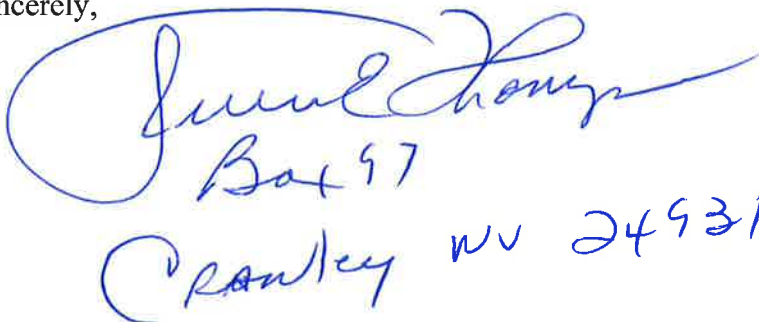 ncerely,
Box 97
Crawley WV 24931